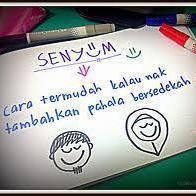 SENYUM
Cara termudah kalau nak
tambahkan pahala bersedekah